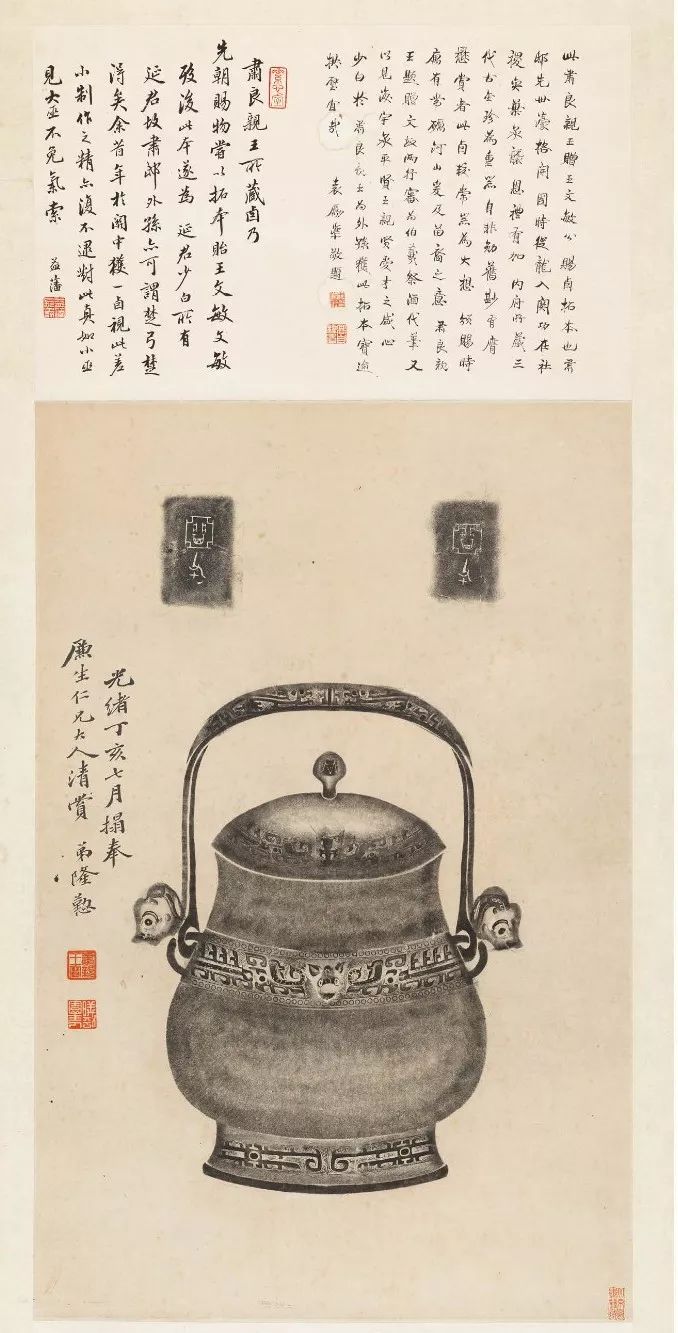 此肅良親王贈王文敏公賜卣拓本也肅
邸先世豪格開國時從龍入關功在社
稷 恩禮有加 内府所藏三
代吉金珍為重器自非勳舊膺
懋賞者此卣常器為大想頒賜時
應有帶礪河山爰及苗裔之意 肅良親
王題贈文敏兩行審為伯羲祭酒代筆又
以見宇承平賢王親賢愛才之盛心
少白於肅良親王為外孫獲此拓本寶逾
拱璧宜哉 袁勵準敬題
肅良親王所藏卣乃
先朝賜物嘗以拓本貽王文敏文敏
歿後此本遂為 延君少白所有
延君故肅邸外孫亦可謂楚弓楚
得矣余昔年於關中獲一卣視此差
小制作之精亦復不逮對此真如小巫
見大巫不免氣索 益藩
光緒丁亥七月搨奉
廉生仁兄大人清賞 弟隆懃